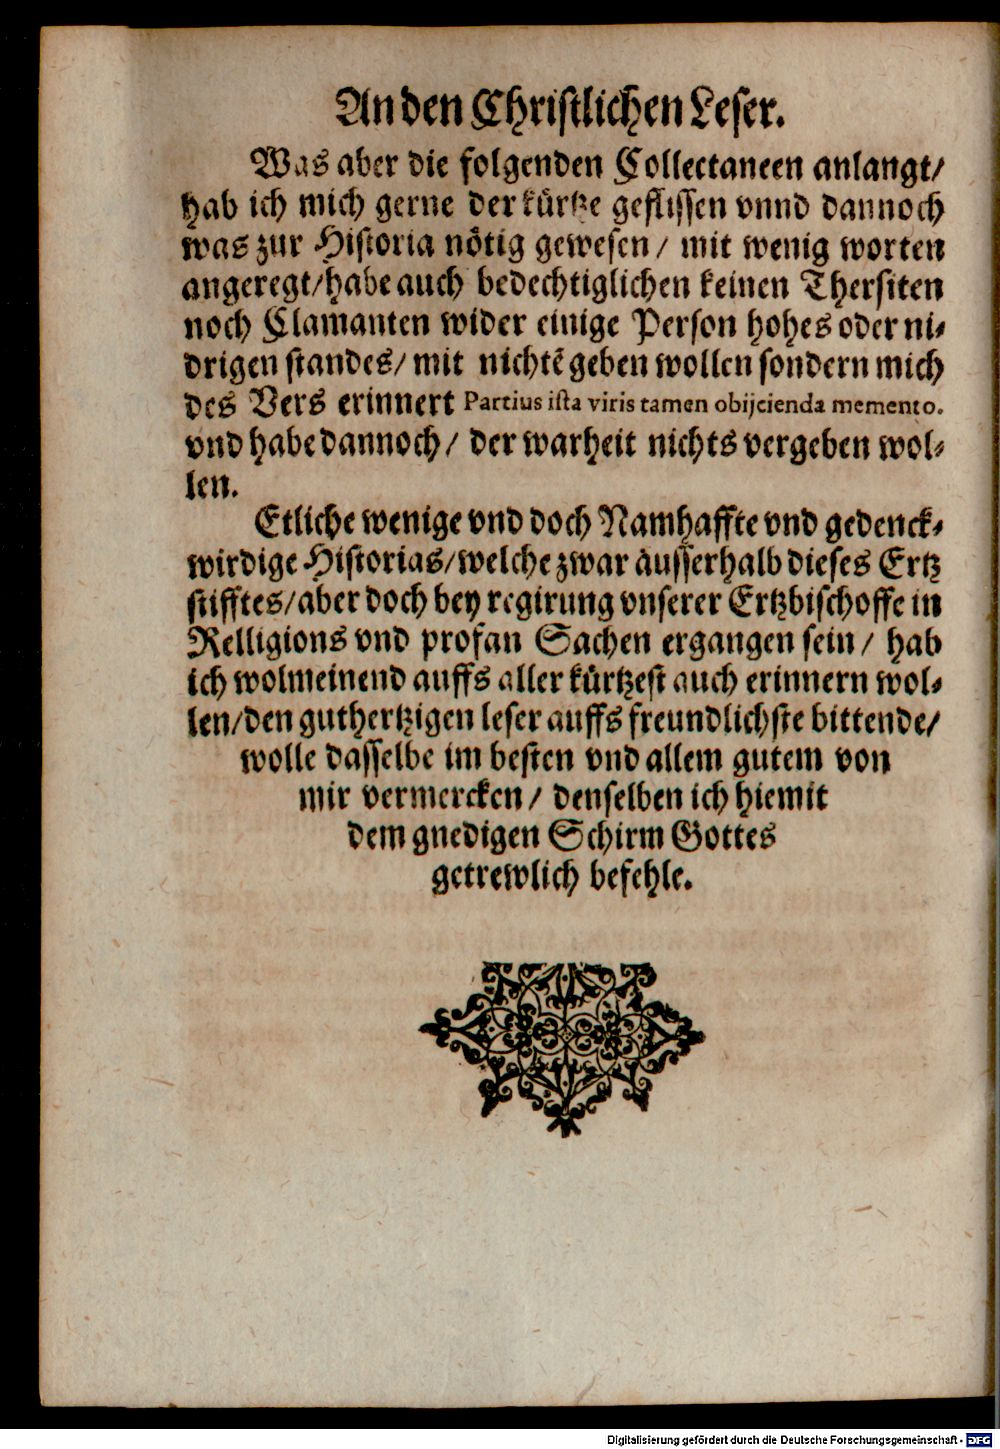 An den Chriſtlichen Leſer.
Was aber die folgenden Collectaneen anlangt/
hab ich mich gerne der kürtze gefliſſen vnnd dannoch
was zur Hiſtoria nötig geweſen/ mit wenig worten
angeregt/habe auch bedechtiglichen keinen Therſiten
noch Clamanten wider einige Perſon hohes oder ni⸗
drigen ſtandes/ mit nichtē geben wollen ſondern mich
des Vers erinnert Partius iſta viris tamen obijcienda memento.
vnd habe dannoch/ der warheit nichts vergeben wol⸗
len.
Etliche wenige vnd doch Namhaffte vnd gedenck⸗
wirdige Hiſtorias/welche zwar auſſerhalb dieſes Ertz
ſtifftes/aber doch bey regirung vnſerer Ertzbiſchoffe in
Relligions vnd profan Sachen ergangen ſein/ hab
ich wolmeinend auffs aller kürtzeſt auch erinnern wol⸗
len/den guthertzigen leſer auffs freundlichſte bittende/
wolle daſſelbe im beſten vnd allem gutem von
mir vermercken/ denſelben ich hiemit
dem gnedigen Schirm Gottes
getrewlich befehle.
Digitalisierung gefördert durch die Deutsche Forschungsgemeinschaft - DFG